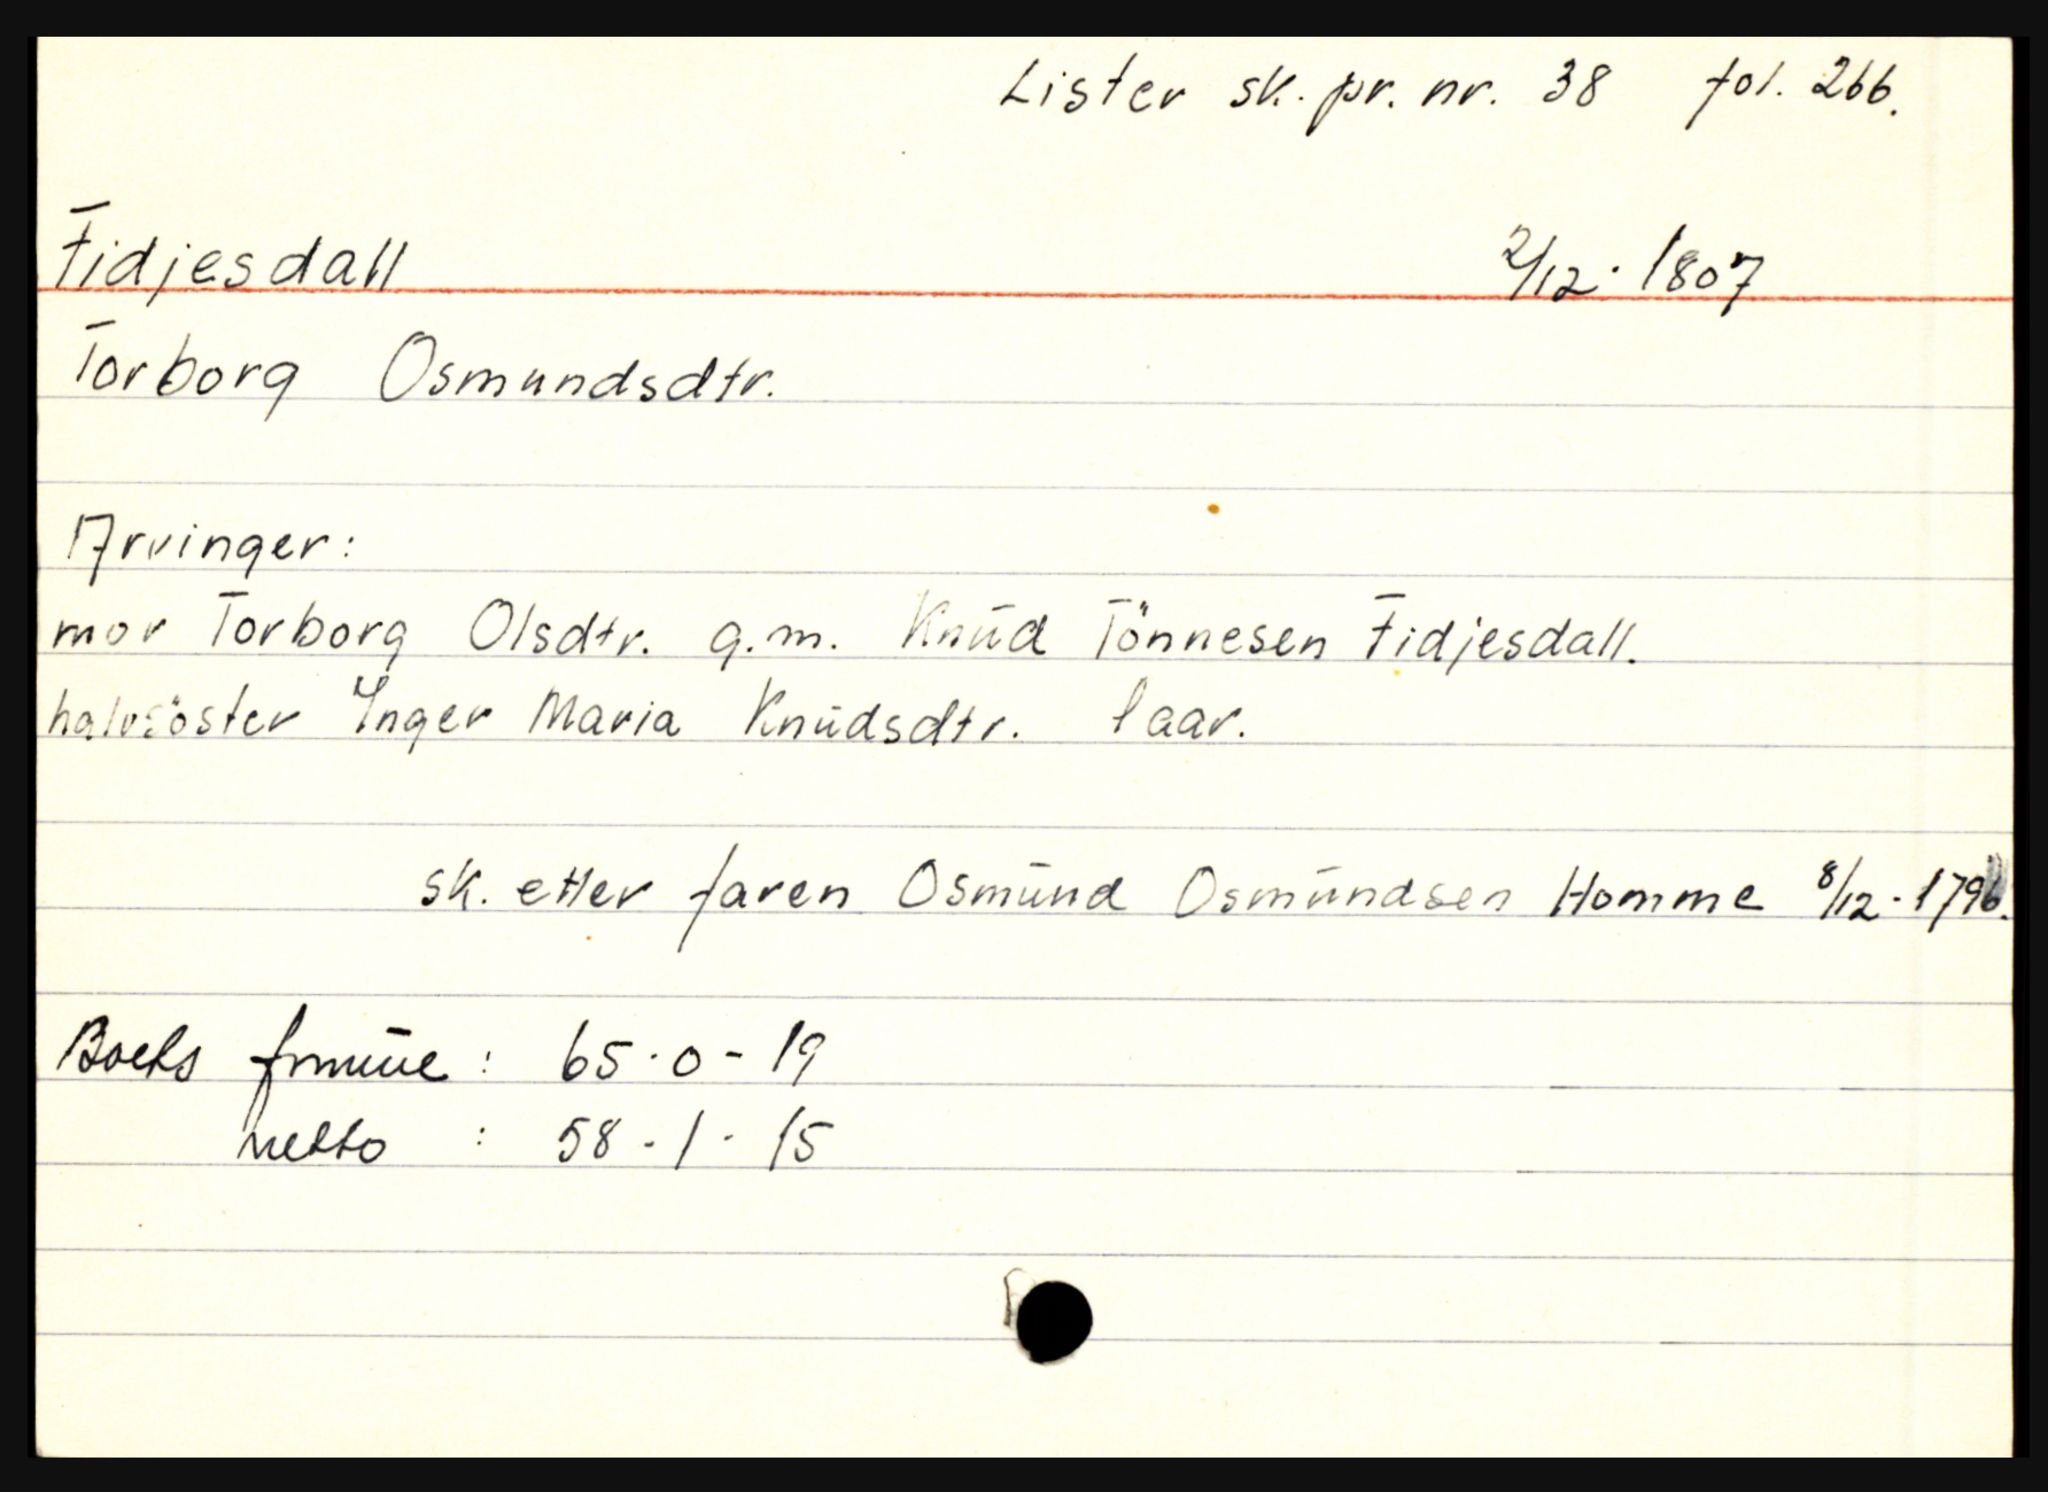 Lister sk. pr. nr. 38 fol. 266.
Fidjesdall 2/12. 1807
Torborg Osmundsdtr.
Arvinger:
mor Torborg Olsdtr. g.m. Knūd Tönnesen Fidjesdall.
halvsöster Inger Maria Knūdsdtr. 1 aar.
sk. etter faren Osmūnd Osmūndsen Homme 8/12. 1796.
Boets : 65 - 0 - 19
netto : 58 - 1 - 15